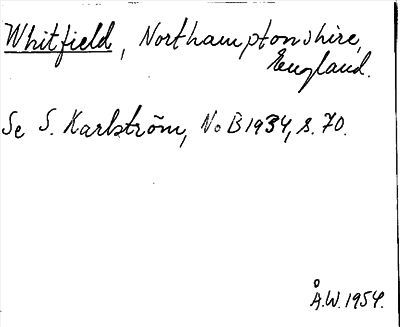 Whitfield, Northamptonshire,
England.
Se S. Karlström, NoB 1934, s. 70.
Å.W. 1954.